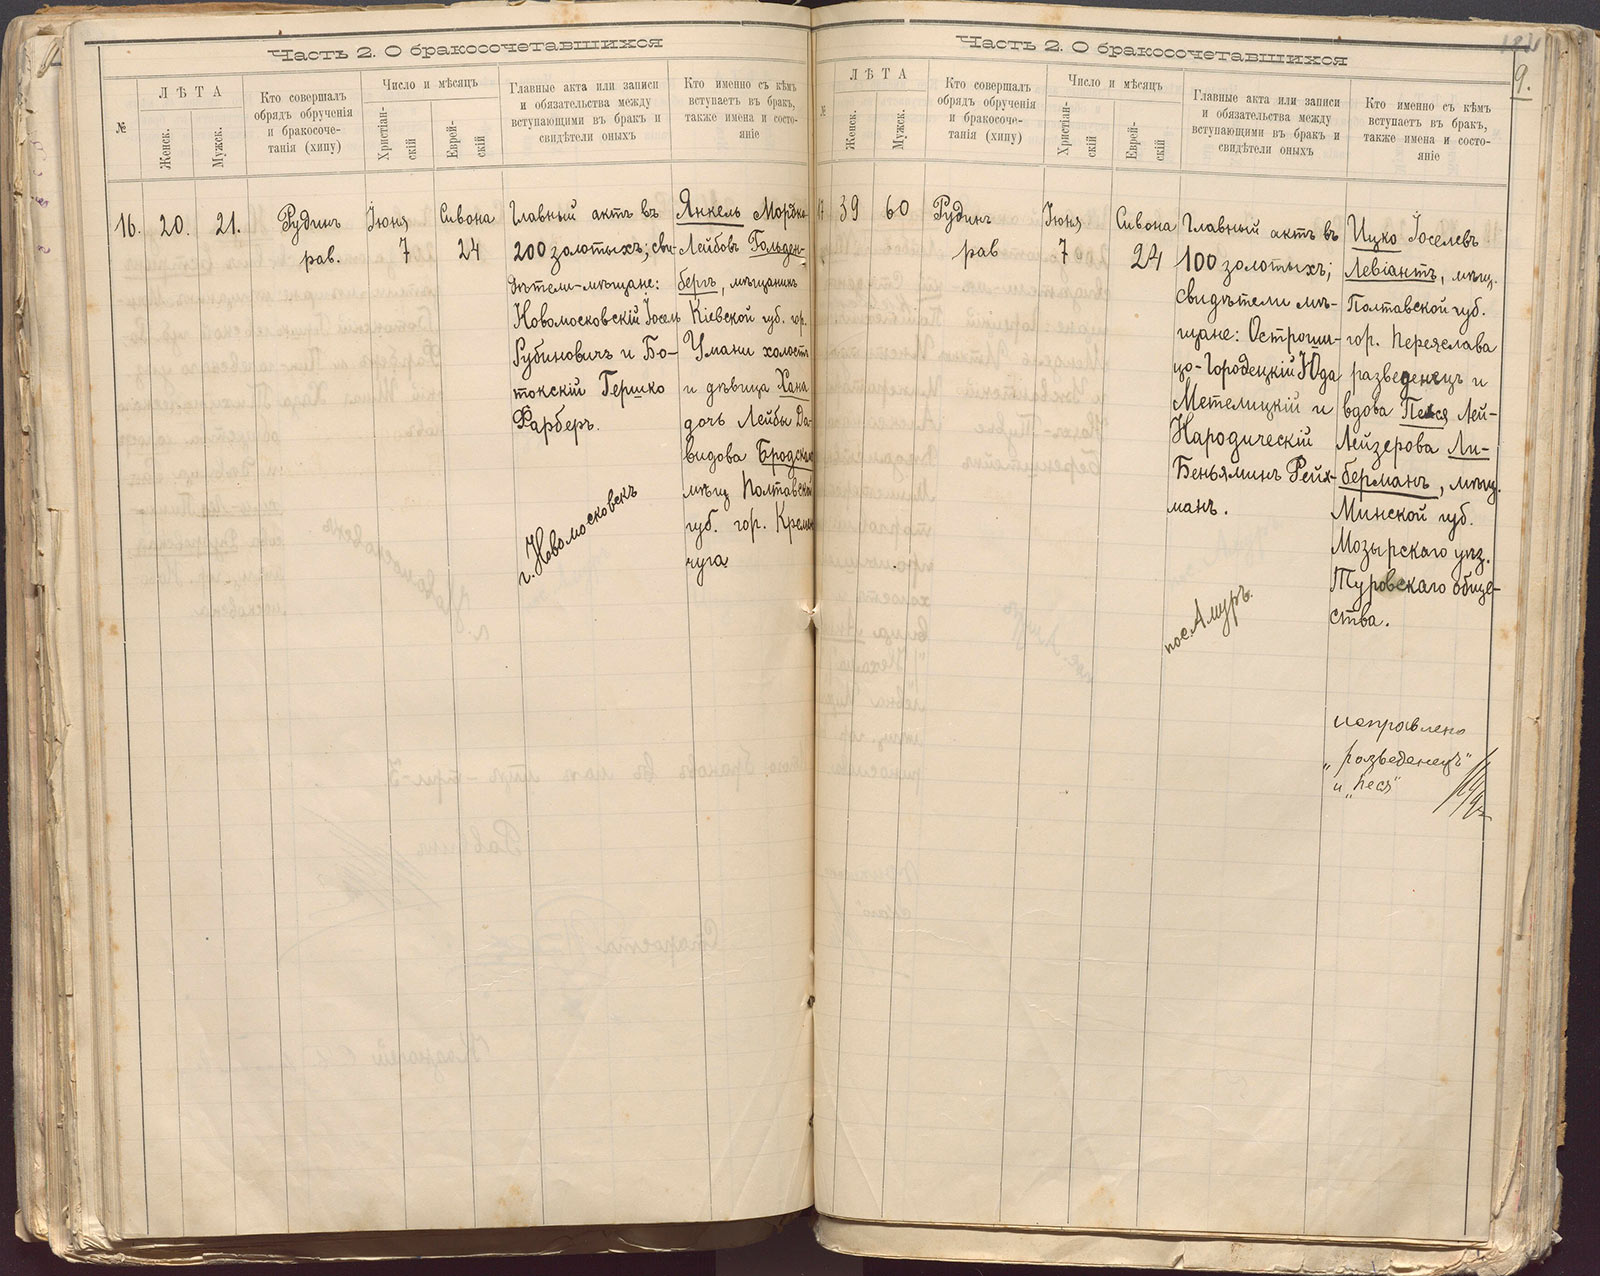 Часть 2. О бракосочетавшихся
№
ЛѢТА
Женск.
Мужск.
Кто совершалъ
обрядъ обрученія
и бракосоче-
танія (хипу)
Число и мѣсяцъ
Христіан-
скій
Еврей-
скій
Главныe акта или записи
и обязательства между
вступающими въ бракъ и
свидѣтели оныхъ
Кто именно съ кѣмъ
вступаетъ въ бракъ,
также имена и состо-
яніе
16.
20.
21.
Рудинъ
рав.
Іюня
7
Сивона
24
Главный актъ въ
200 золотыхъ; сви-
дѣтели-мѣщане:
Новомосковскій Іосель
Рубиновичъ и Бо-
токскій Гершко
Фарберъ.
г. Новомосковскъ
Янкель Мордко-
Лейбовъ Гольден-
бергъ, мѣщанинъ
Кіевской губ. гор.
Умани холостъ
и дѣвица Хана
дочь Лейбы Да-
видова Бродская
мѣщ. Полтавской
губ. гор. Кремен-
чуга
Часть 2. О бракосочетавшихся
9.
№
ЛѢТА
Женск.
Мужск.
Кто совершалъ
обрядъ обрученія
и бракосоче-
танія (хипу)
Число и мѣсяцъ
Христіан-
скій
Еврей-
скій
Главныe акта или записи
и обязательства между
вступающими въ бракъ и
свидѣтели оныхъ
Кто именно съ кѣмъ
вступаетъ въ бракъ,
также имена и состо-
яніе
39
60
Рудинъ
рав
Іюня
7
Сивона
24
Главный актъ въ
100 золотыхъ;
свидѣтели мѣ-
щане: Остроши-
цо-Городецкій Юда
Метелицкій и
Народическій
Беньяминъ Рейх-
манъ.
пос. Амуръ.
Ицко Іоселевъ
Левіантъ, мѣщ.
Полтавской губ.
гор. Переяслава
разведенецъ и
вдова Песя Лей-
Лейзерова Ли-
берманъ, мѣщ.
Минской губ.
Мозырскаго уѣз.
Туровскаго обще-
ства.
исправлено
„разведенецъ"
и „Песя"